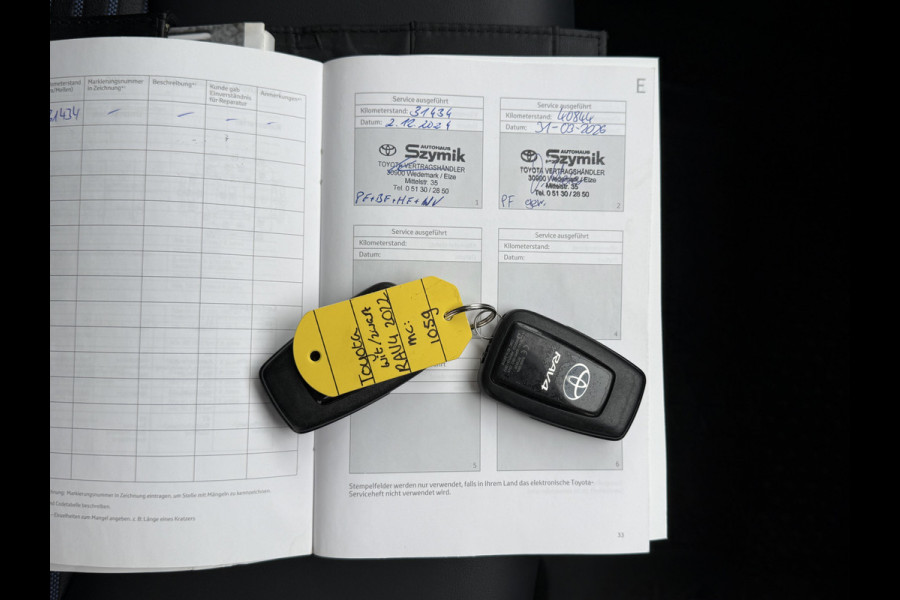 Markierungsnummer
in Zeichnung
Beschreibung
Kunde gab
Einverständnis
für Reparatur
Anmerkungen
31434
E
Service ausgeführt
Kilometerstand: 31434
Datum: 2.12.2024
AUTOHAUS
Szymik
TOYOTA VERTRAGSHÄNDLER
30900 Wedemark / Elze
Mittelstr. 35
Tel. 0 51 30 / 28 50
PF+BF+HF+WV
1
Service ausgeführt
Kilometerstand: 40844
Datum: 31-03-2026
AUTOHAUS
Szymik
TOYOTA VERTRAGSHÄNDLER
30900 Wedemark / Elze
Mittelstr. 35
Tel. 0 51 30 / 28 50
PF
2
Service ausgeführt
Kilometerstand:
Datum:
Service ausgeführt
Kilometerstand:
Datum:
4
Toyota
wit/zwart
RAV4 2022
mc:
1059
RAV4
5
6
Stempelfelder werden nur verwendet, falls in Ihrem Land das elektronische Toyota-
Serviceheft nicht verwendet wird.
33
Markierungsnummer in Zeichnung eintragen, um Stelle mit Mängeln zu kennzeichnen.
Einzelheiten zum Mangel angeben, z. B. Länge eines Kratzers